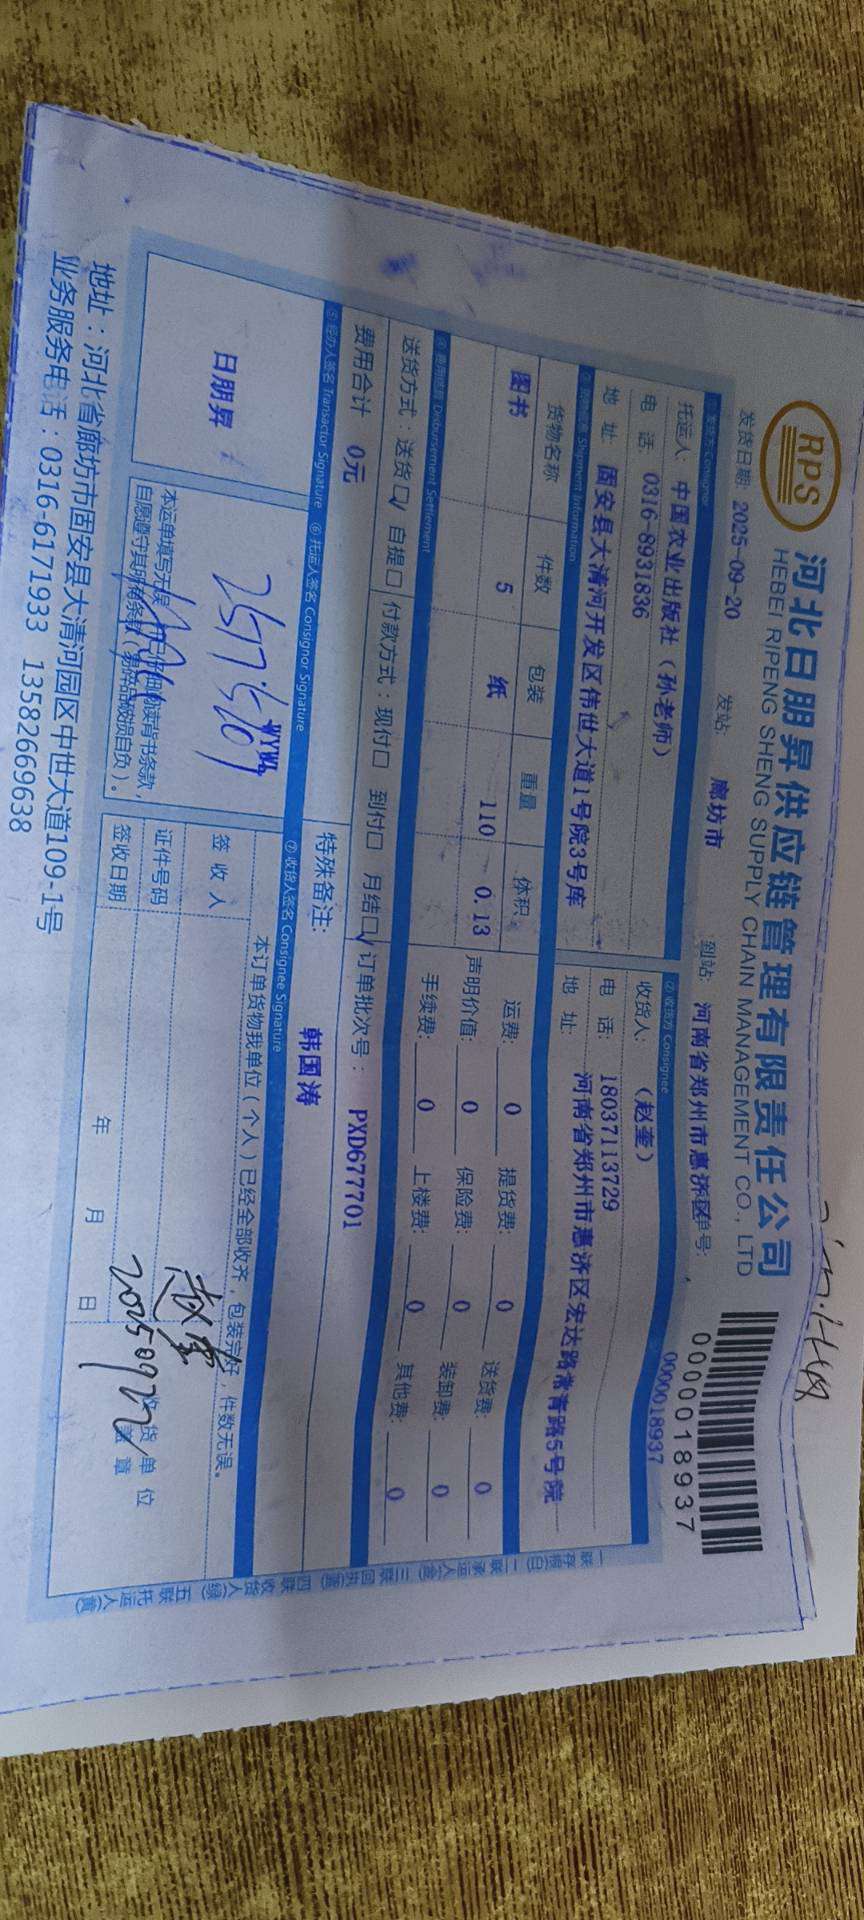 RPS
河北日朋昇供应链管理有限责任公司
HEBEI RIPENG SHENG SUPPLY CHAIN MANAGEMENT CO., LTD
0000018937
发货日期: 2025-09-20 发站: 廊坊市 到站: 河南省郑州市惠济区 单号: 0000018937
① 发货方 Consignor ② 收货方 Consignee
托运人: 中国农业出版社（孙老师） 收货人: （赵奎）
电 话: 0316-8931836 电 话: 18037113729
地 址: 固安县大清河开发区伟世大道1号院3号库 地 址: 河南省郑州市惠济区宏达路常青路5号院
Shipment Information
货物名称 件数 包装 重量 体积 运费: 0 提货费: 0 送货费: 0
图书 5 纸 110 0.13 声明价值: 0 保险费: 0 装卸费: 0
手续费: 0 上楼费: 0 其他费: 0
④ 费用结算 Disbursement Settlement
送货方式: 送货☑ 自提□ 付款方式: 现付□ 到付□ 月结☑ 订单批次号: PXD677701
费用合计 0元 特殊备注: 韩国涛
⑤ 经办人签名 Transactor Signature ⑥ 托运人签名 Consignor Signature ⑦ 收货人签名 Consignee Signature
日朋昇
WYWL
本订单货物我单位（个人）已经全部收齐，包装完好，件数无误。
签 收 人 赵奎
证件号码
签收日期 年 月 日 20250922
收货单位
盖章
本运单填写无误，且仔细阅读背书条款，
自愿遵守其所有条款（易碎品破损自负）。
地址：河北省廊坊市固安县大清河园区中世大道109-1号
业务服务电话：0316-6171933 13582669638
一联存根(白) 二联承运人(红) 三联回执(蓝) 四联收货人(绿) 五联托运人(黄)